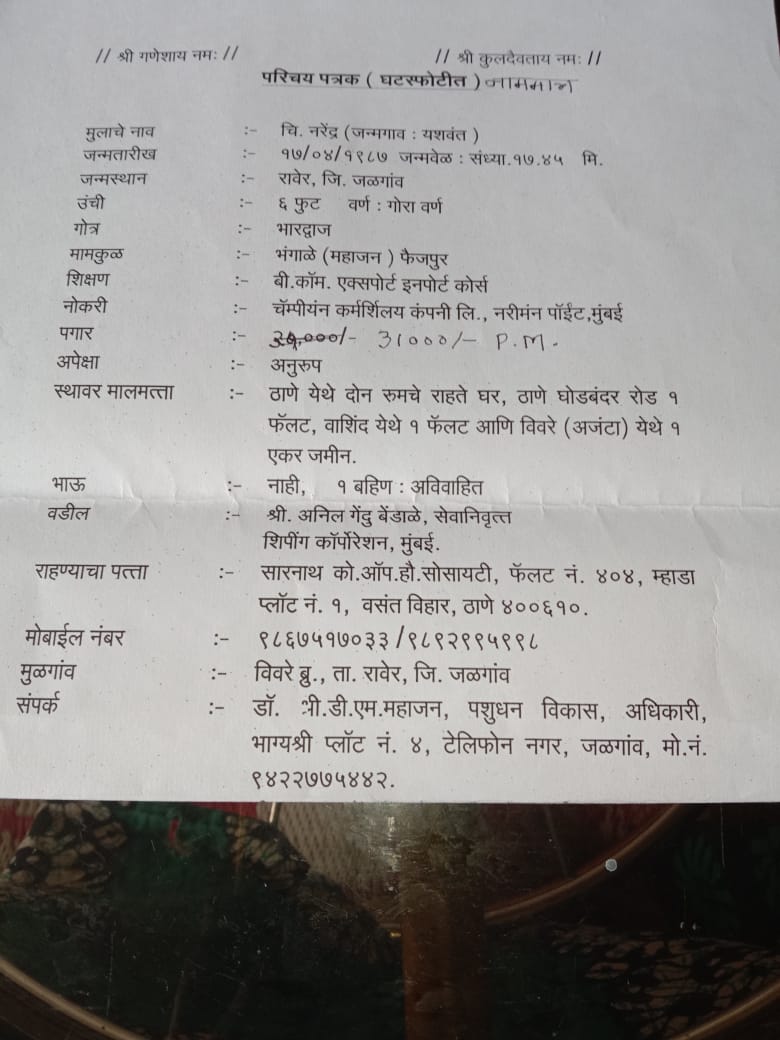 // श्री गणेशाय नमः // // श्री कुलदैवताय नमः //
परिचय पत्रक ( घटस्फोटीत ) नाममात्र
मुलाचे नाव :- चि. नरेंद्र (जन्मगाव : यशवंत )
जन्मतारीख :- १७/०४/१९८७ जन्मवेळ : संध्या.१७.४५ मि.
जन्मस्थान :- रावेर, जि. जळगांव
उंची :- ६ फुट वर्ण : गोरा वर्ण
गोत्र :- भारद्वाज
मामकुळ :- भंगाळे (महाजन ) फैजपुर
शिक्षण :- बी.कॉम. एक्सपोर्ट इनपोर्ट कोर्स
नोकरी :- चॅम्पीयंन कर्मर्शिलय कंपनी लि., नरीमंन पॉईंट,मुंबई
पगार :- 31000/- P.M.
अपेक्षा :- अनुरुप
स्थावर मालमत्ता :- ठाणे येथे दोन रुमचे राहते घर, ठाणे घोडबंदर रोड १
फॅलट, वाशिंद येथे १ फॅलट आणि विवरे (अजंटा) येथे १
एकर जमीन.
भाऊ :- नाही, १ बहिण : अविवाहित
वडील :- श्री. अनिल गेंदु बेंडाळे, सेवानिवृत्त
शिपींग कॉर्पोरेशन, मुंबई.
राहण्याचा पत्ता :- सारनाथ को.ऑप.हौ.सोसायटी, फॅलट नं. ४०४, म्हाडा
प्लॉट नं. १, वसंत विहार, ठाणे ४००६१०.
मोबाईल नंबर :- ९८६७५१७०३३/९८९२९९५९९८
मुळगांव :- विवरे ब्रु., ता. रावेर, जि. जळगांव
संपर्क :- डॉ. श्री.डी.एम.महाजन, पशुधन विकास, अधिकारी,
भाग्यश्री प्लॉट नं. ४, टेलिफोन नगर, जळगांव, मो.नं.
९४२२७७५४४२.